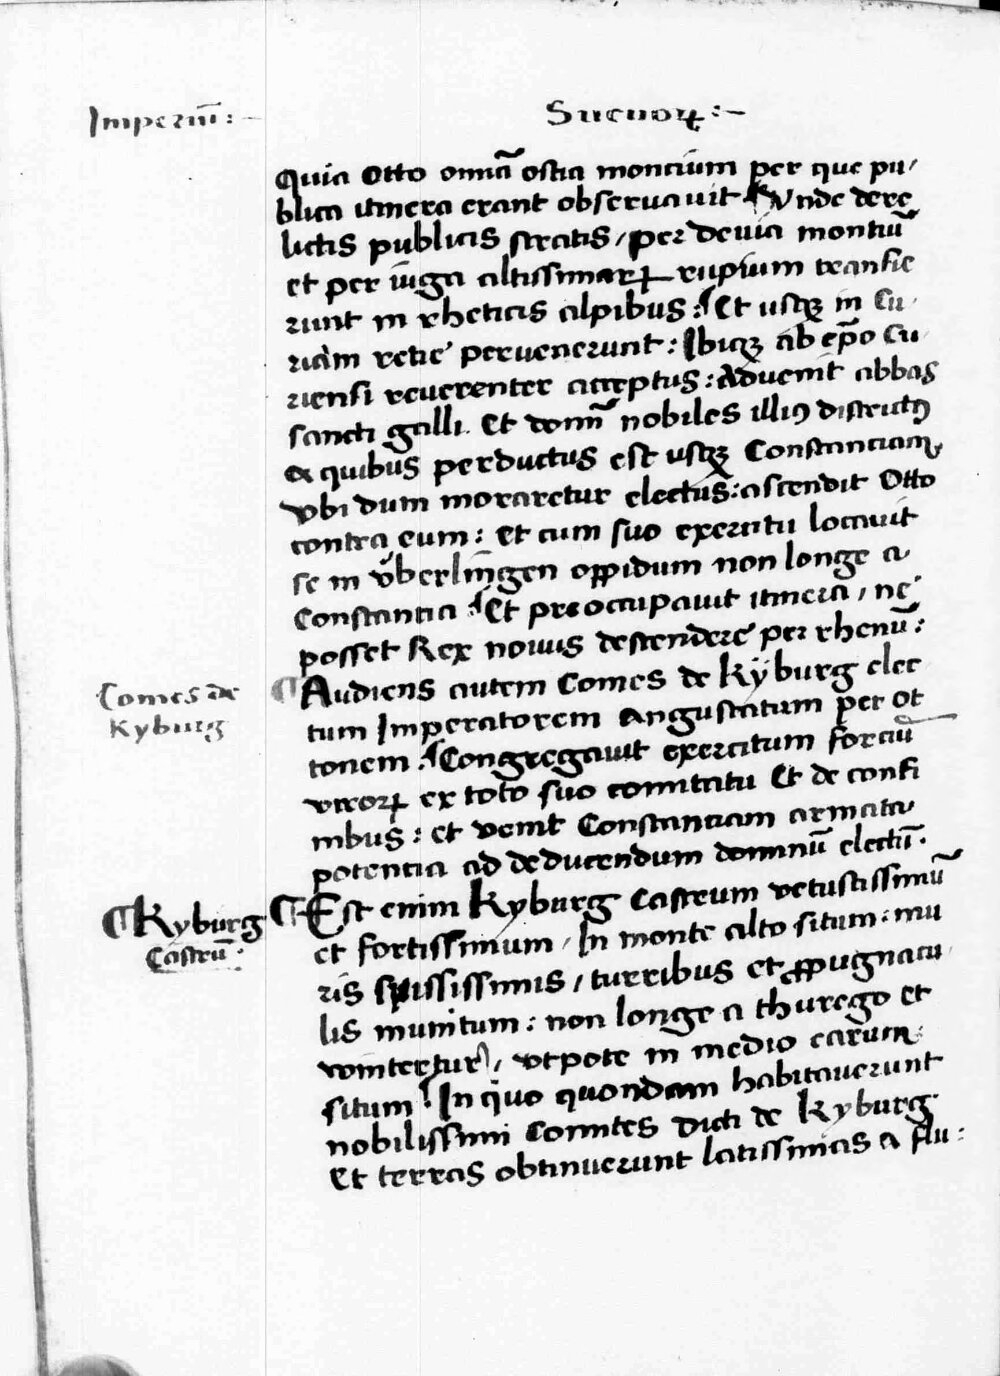 Imperiū:-
Sueuoꝝ:-
Quia Otto omnīa ostia moncium per que pu/
blica itinera erant obseruauit. Vnde dere
lictis publicis stratis / per deuia montiū
et per iuga altissimaꝝ rupium transie
runt in rheticis alpibus: Et usqꝫ in Cu
riam retie peruenerunt: Ibiqꝫ ab ep̄o Cu
riensi reuerenter acceptus: Aduenit abbas
sancti galli. Et domī nobiles illiꝰ districtꝰ
ex quibus perductus est usqꝫ Constanciam.
vbi dum moraretur electus: ascendit Otto
contra eum: et cum suo exercitu locauit
se in v̊berlingen oppidum non longe a
Constantia: Et preoccupauit itinera, ne
posset Rex nouus descendere per rhenū:
Comes de
Kyburg
¶ Audiens autem Comes de Kÿburg elec
tum Imperatorem angustatum per Ot
tonem: Congregauit exercitum forciū
viroꝝ ex toto suo comitatu Et de confi
nibus: et venit Constanciam armata
potentia ad deducendum dominū electū.
¶ Kyburg
Castrū.
¶ Est enim Kyburg Castrum vetustissimū
et fortissimum, In monte alto situm: mu
ris spississimis, turribus et ꝓpugnacu
lis munitum: non longe a thurego et
wintertur, vtpote in medio earum
situm: In quo quondam habitauerunt
nobilissimi Comites dicti de Kyburg
Et terras obtinuerunt latissimas a flu: